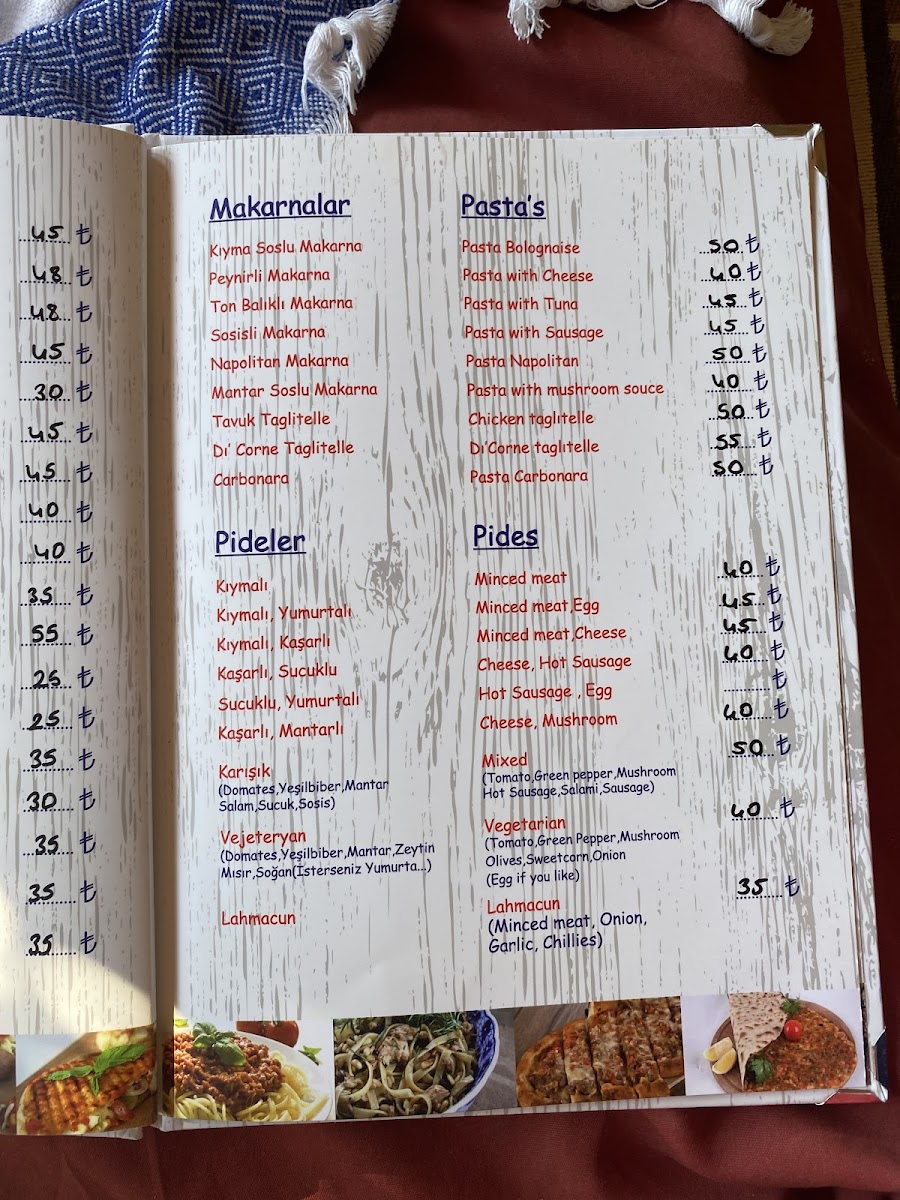 45 ₺
48 ₺
48 ₺
45 ₺
30 ₺
45 ₺
45 ₺
40 ₺
40 ₺
35 ₺
55 ₺
25 ₺
25 ₺
35 ₺
30 ₺
35 ₺
35 ₺
35 ₺
Makarnalar
Kıyma Soslu Makarna
Peynirli Makarna
Ton Balıklı Makarna
Sosisli Makarna
Napolitan Makarna
Mantar Soslu Makarna
Tavuk Taglitelle
Dı' Corne Taglitelle
Carbonara
Pasta's
Pasta Bolognaise 50 ₺
Pasta with Cheese 40 ₺
Pasta with Tuna 45 ₺
Pasta with Sausage 45 ₺
Pasta Napolitan 50 ₺
Pasta with mushroom souce 40 ₺
Chicken taglıtelle 50 ₺
Dı'Corne taglıtelle 55 ₺
Pasta Carbonara 50 ₺
Pideler
Kıymalı
Kıymalı, Yumurtalı
Kıymalı, Kaşarlı
Kaşarlı, Sucuklu
Sucuklu, Yumurtalı
Kaşarlı, Mantarlı
Karışık
(Domates,Yeşilbiber,Mantar
Salam,Sucuk,Sosis)
Vejeteryan
(Domates,Yeşilbiber,Mantar,Zeytin
Mısır,Soğan(İsterseniz Yumurta...)
Lahmacun
Pides
Minced meat 40 ₺
Minced meat,Egg 45 ₺
Minced meat,Cheese 45 ₺
Cheese, Hot Sausage 40 ₺
Hot Sausage , Egg ₺
Cheese, Mushroom 40 ₺
Mixed 50 ₺
(Tomato,Green pepper,Mushroom
Hot Sausage,Salami,Sausage)
Vegetarian 40 ₺
(Tomato,Green Pepper,Mushroom
Olives,Sweetcorn,Onion
(Egg if you like)
Lahmacun 35 ₺
(Minced meat, Onion,
Garlic, Chillies)